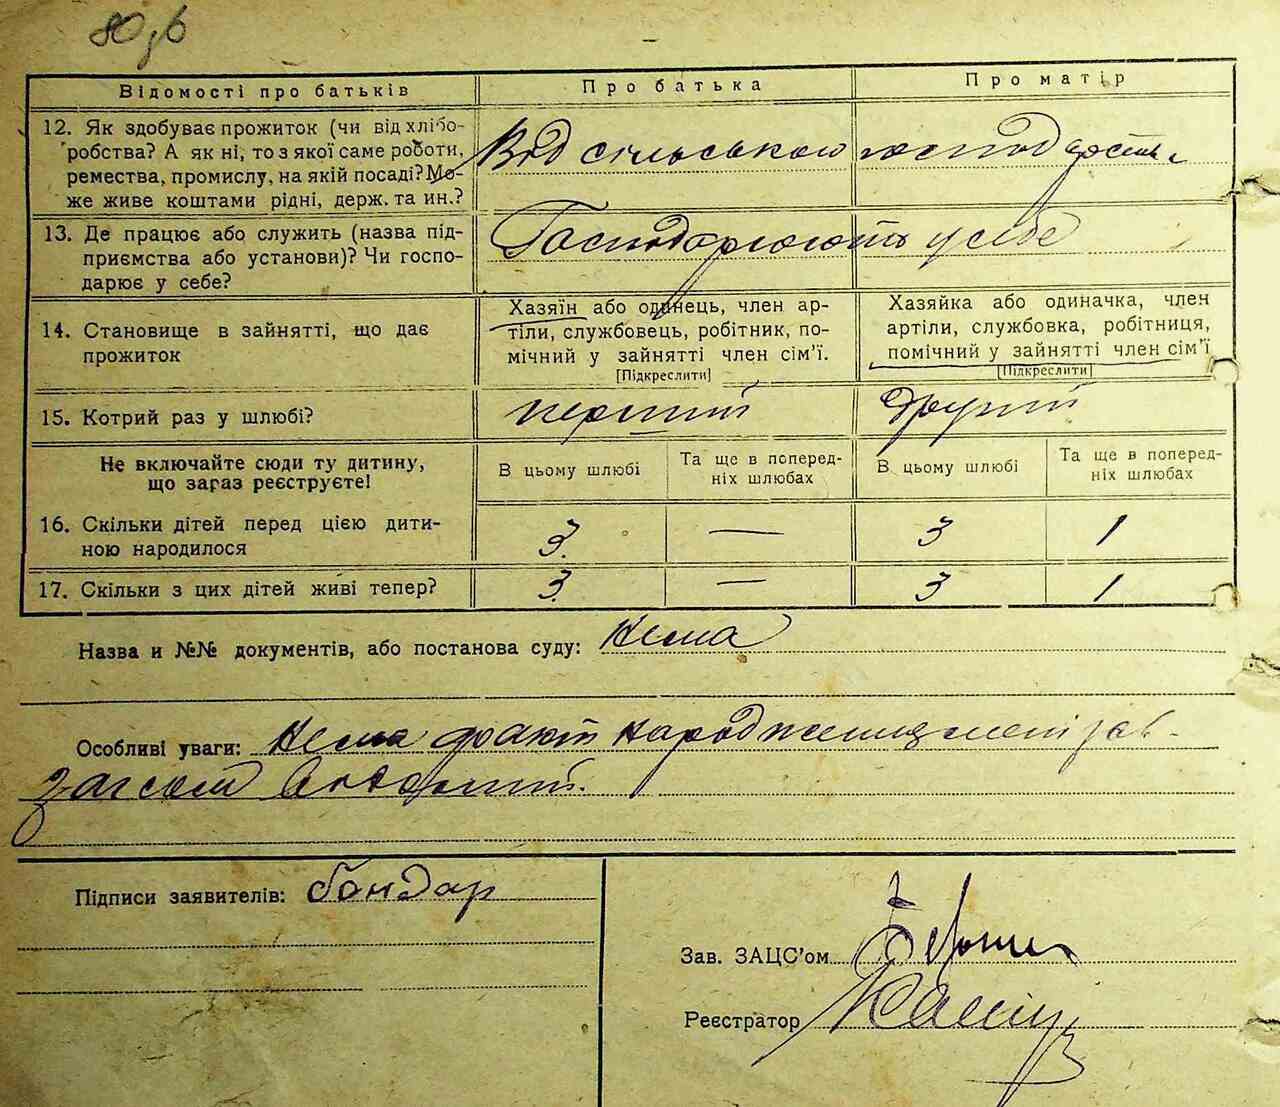 80зв
Відомості про батьків
Про батька
Про матір
12. Як здобуває прожиток (чи від хлібо-
робства? А як ні, то з якої саме роботи,
ремества, промислу, на якій посаді? Мо-
же живе коштами рідні, держ. та ин.?
Від сільського господарства
13. Де працює або служить (назва під-
приємства або установи)? Чи госпо-
дарює у себе?
Господарюють у себе
14. Становище в зайнятті, що дає
прожиток
Хазяїн або одинець, член ар-
тіли, службовець, робітник, по-
мічний у зайнятті член сім'ї.
[Підкреслити]
Хазяйка або одиначка, член
артіли, службовка, робітниця,
помічний у зайнятті член сім'ї
[Підкреслити]
15. Котрий раз у шлюбі?
перший
другий
Не включайте сюди ту дитину,
що зараз реєструєте!
В цьому шлюбі
Та ще в поперед-
ніх шлюбах
В цьому шлюбі
Та ще в поперед-
ніх шлюбах
16. Скільки дітей перед цією дити-
ною народилося
3
—
3
1
17. Скільки з цих дітей живі тепер?
3
—
3
1
Назва и №№ документів, або постанова суду: Нема
Особливі уваги: Нема факт народження мені зав-
загсом відомий.
Підписи заявителів: Бондар
Зав. ЗАЦС'ом
Реєстратор